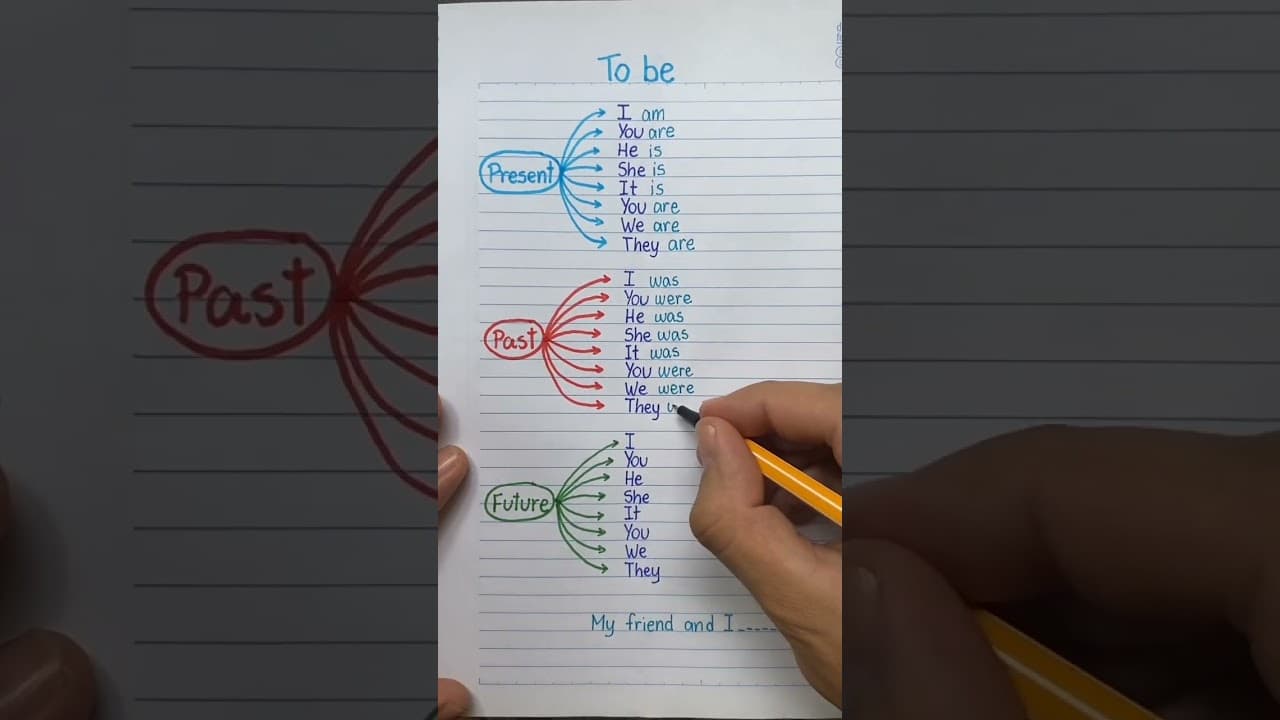 To be
Present
I am
You are
He is
She is
It is
You are
We are
They are
Past
I was
You were
He was
She was
It was
You were
We were
They
Future
I
You
He
She
It
You
We
They
My friend and I_____
Past